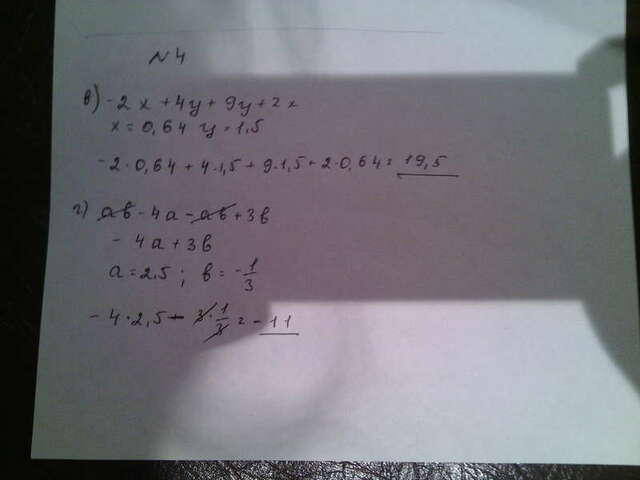 №4
в) -2x + 4y + 9y + 2x
x = 0,64 y = 1,5
-2·0,64 + 4·1,5 + 9·1,5 + 2·0,64 = 19,5
г) ab - 4a - ab + 3b
- 4a + 3b
a = 2,5 ; b = -1/3
- 4·2,5 - 3·1/3 = -11